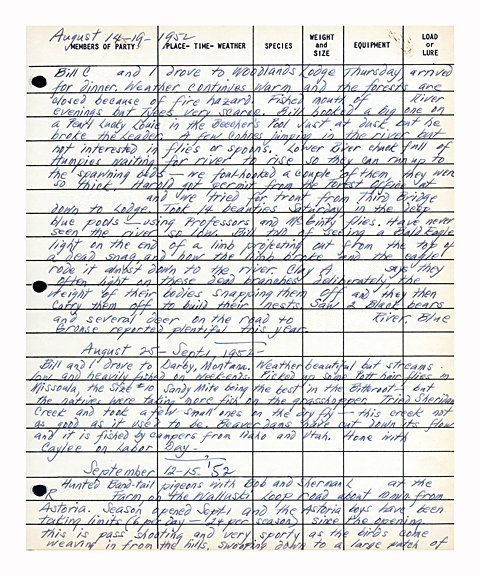 August 14-19- 1952
MEMBERS OF PARTY PLACE- TIME- WEATHER SPECIES WEIGHT and SIZE EQUIPMENT LOAD or LURE
Bill C and I drove to Woodlands Lodge Thursday, arrived
for dinner. Weather continues warm and the forests are
closed because of fire hazard. Fished mouth of River
evenings but very scarce. Bill hooked a big one on
a Pearl Lucky Louie in the Beaver Pool just at dusk but he
broke the leader. A few Cohoes jumping in the river but
not interested in flies or spoons. Lower River chuck full of
Humpies waiting for river to rise so they can run up to
the spawning beds - we foul-hooked a couple of them, they were
so thick. Harold got permit from the Forest Office at
and we tried for trout from Third Bridge
down to Lodge. Took 14 beauties Saturday in the deep
blue pools - using Professors and McGinty flies. Have never
seen the river so low. Bill told of seeing a Bald Eagle
light on the end of a limb projecting out from the top of
a dead snag and how the limb broke and the eagle
rode it almost down to the river. Clay A says they
often light on these dead branches deliberately, the
weight of their bodies snapping them off and they then
carry them off to build their nests. Saw 2 Black bears
and several deer on the road to River. Blue
Grouse reported plentiful this year.
August 25 - Sept 1, 1952-
Bill and I drove to Darby, Montana. Weather beautiful but streams
low and heavily fished on weekends. Picked up some Pott hair flies in
Missoula, the Size #10 Sandy Mite being the best in the Bitteroot - but
the natives were taking more fish on the grasshopper. Tried Sheridan
Creek and took a few small ones on the dry fly - this creek not
as good as it used to be. Beaver dams have cut down its flow
and it is fished by campers from Idaho and Utah. Home with
Caylee on Labor Day -
September 12-15, '52
Hunted Band-tail pigeons with Bob and Sherman L at the
R Farm on the Walluski Loop road about 10 min from
Astoria. Season opened Sept 1 and the Astoria boys have been
taking limits (6 per day - 24 per season) since the opening.
this is pass shooting and very sporty as the birds come
weaving in from the hills, swooping down to a large patch of